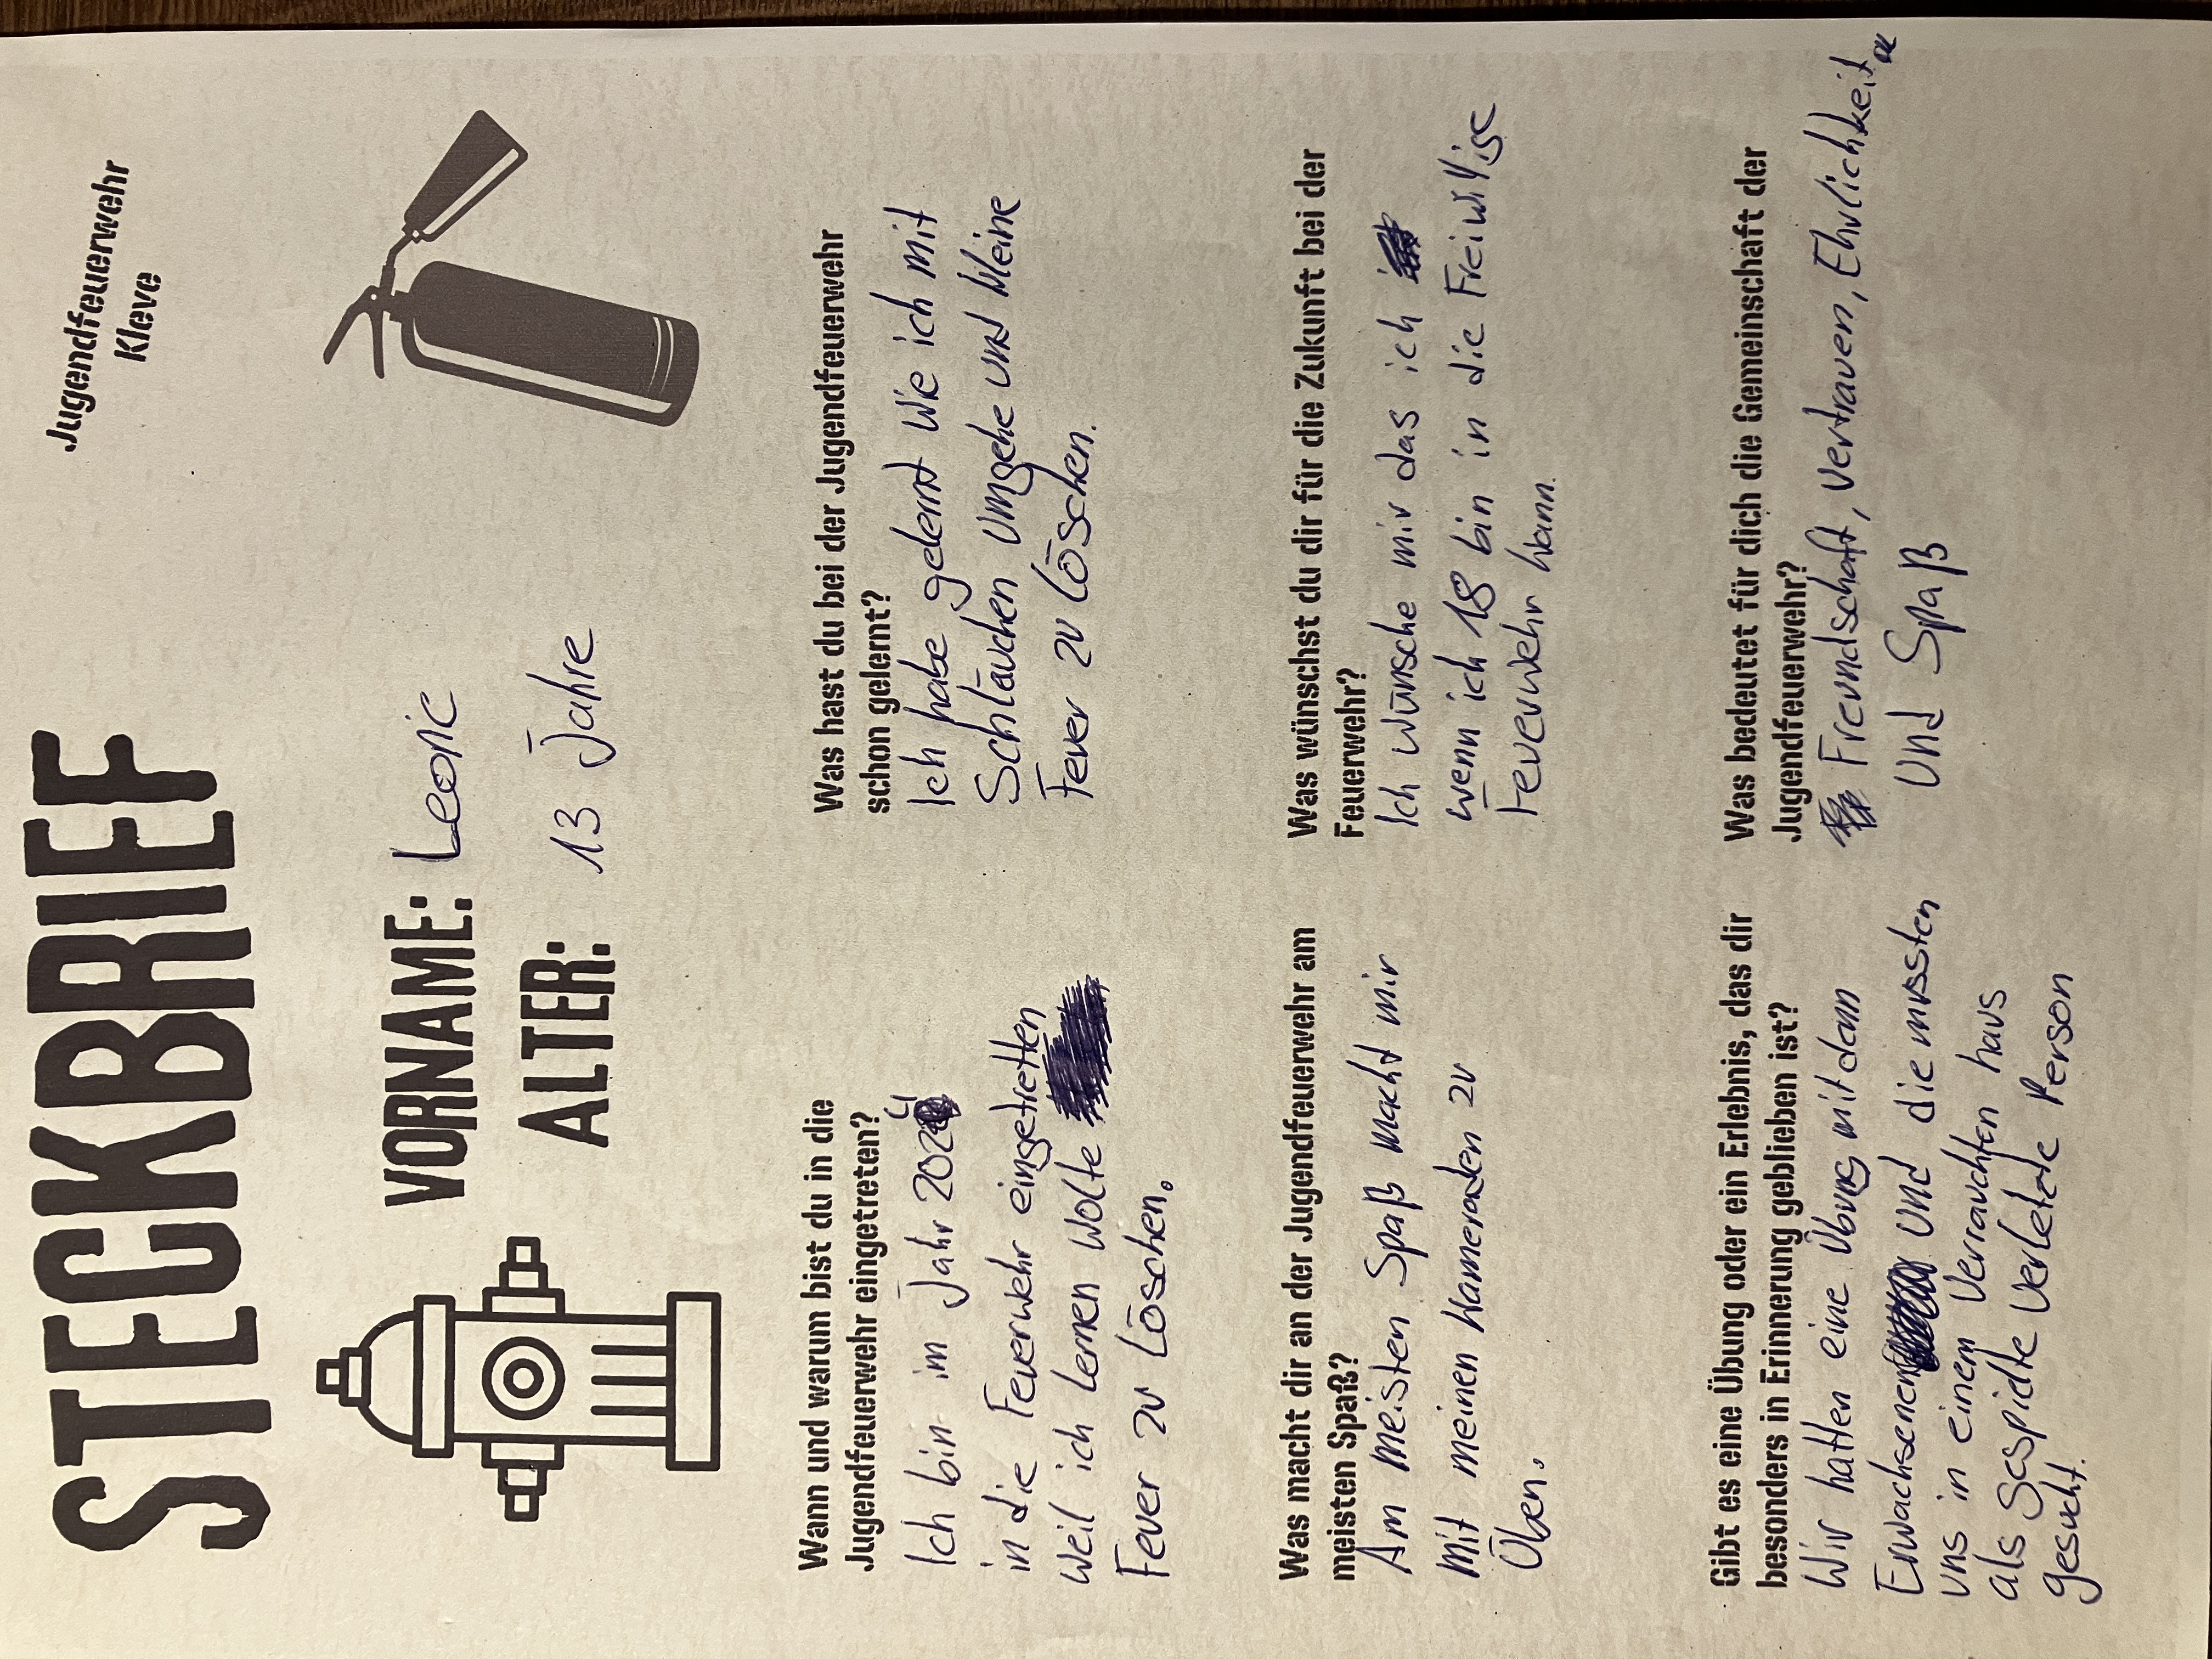 STECKBRIEF
Jugendfeuerwehr
Kleve
VORNAME: Leoric
ALTER: 13 Jahre
Wann und warum bist du in die
Jugendfeuerwehr eingetreten?
Ich bin im Jahr 2024
in die Feuerwehr eingetretten
weil ich lernen wolte
Feuer zu Löschen.
Was hast du bei der Jugendfeuerwehr
schon gelernt?
Ich habe gelernt wie ich mit
Schläuchen umgehe und kleine
Feuer zu löschen.
Was macht dir an der Jugendfeuerwehr am
meisten Spaß?
Am meisten Spaß macht mir
mit meinen Kameraden zu
Üben.
Was wünschst du dir für die Zukunft bei der
Feuerwehr?
Ich wünsche mir das ich
wenn ich 18 bin in die Freiwillige
Feuerwehr kann.
Gibt es eine Übung oder ein Erlebnis, das dir
besonders in Erinnerung geblieben ist?
Wir hatten eine Übung mit dem
Erwachsenen und die mussten
uns in einem Verrauchten haus
als Gespielte Verletzte Person
gesucht.
Was bedeutet für dich die Gemeinschaft der
Jugendfeuerwehr?
Freundschaft, Vertrauen, Ehrlichkeit
Und Spaß